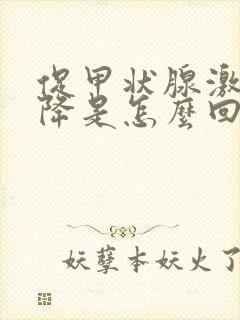 促甲状腺激
降是怎麽回
妖孽本妖火了